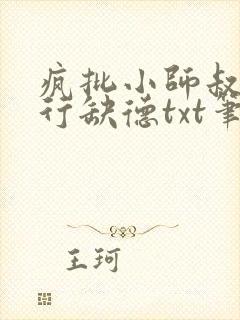 疯批小师叔
行缺德txt笔
王珂